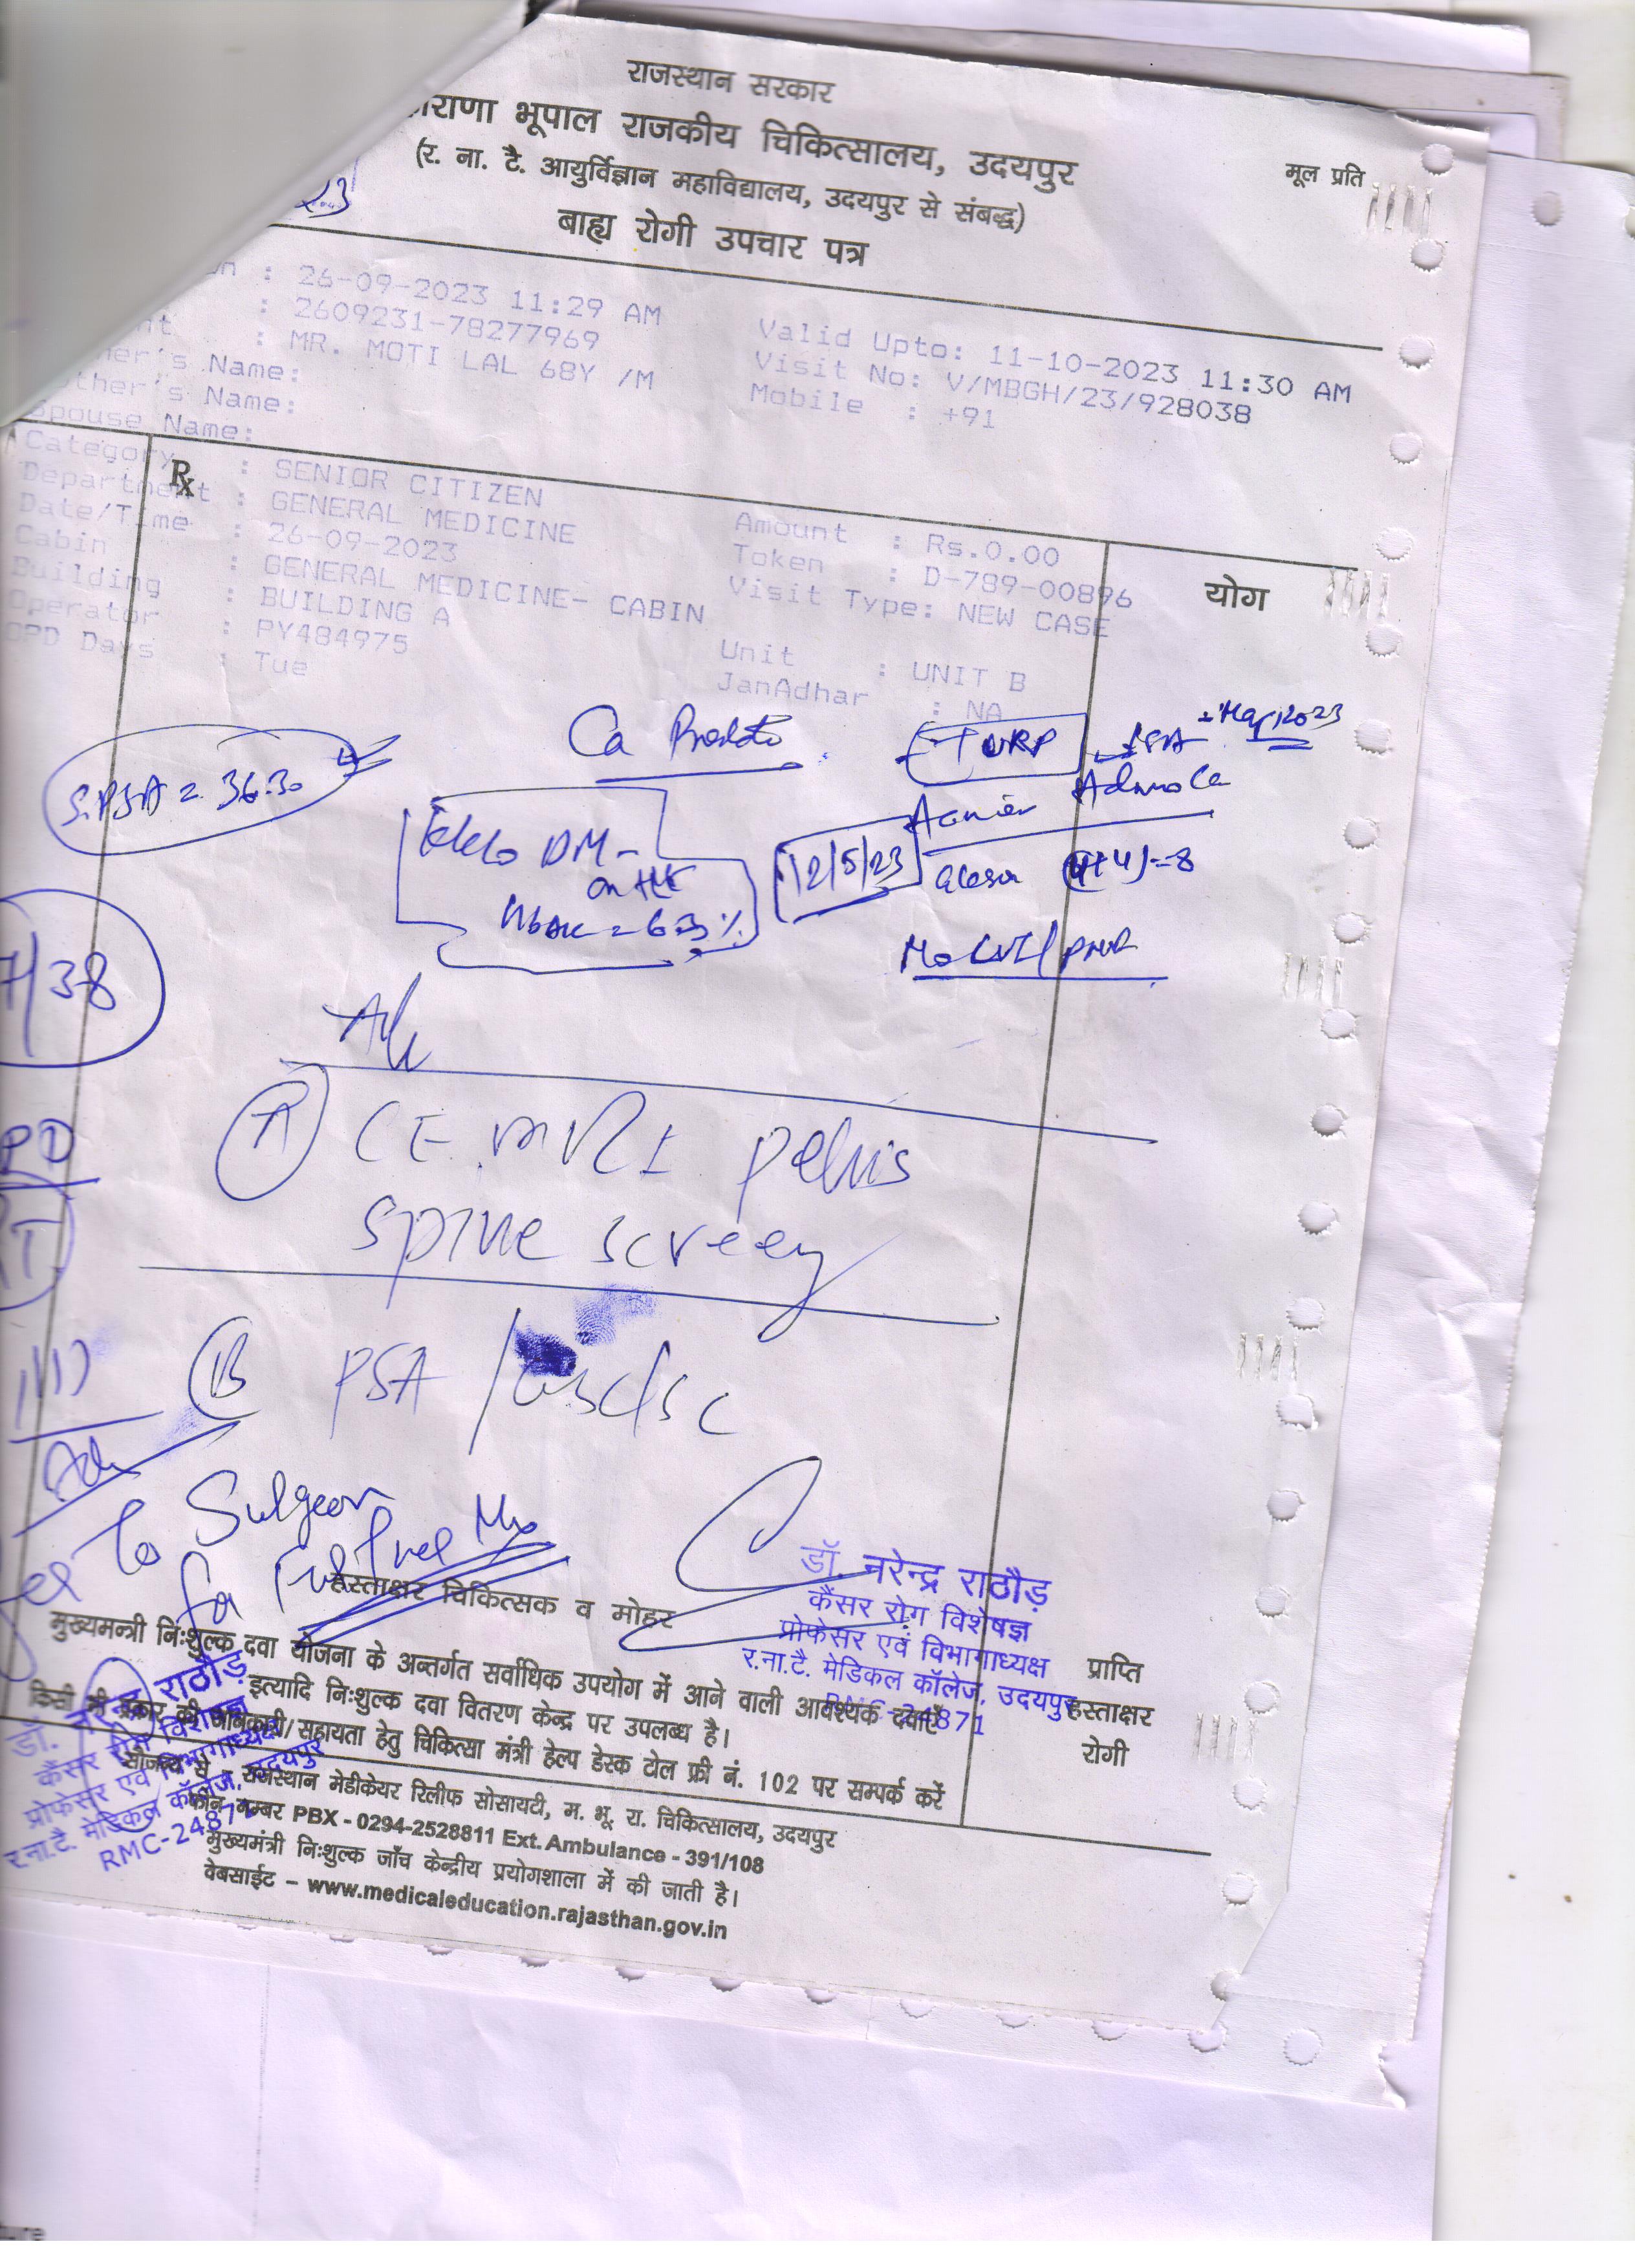 राजस्थान सरकार
राणा भूपाल राजकीय चिकित्सालय, उदयपुर
मूल प्रति
(र. ना. टै. आयुर्विज्ञान महाविद्यालय, उदयपुर से संबद्ध)
23
बाह्य रोगी उपचार पत्र
: 26-09-2023 11:29 AM
Valid Upto: 11-10-2023 11:30 AM
: 2609231-78277969
Visit No: V/MBGH/23/928038
: MR. MOTI LAL 68Y /M
Mobile : +91
her's Name:
other's Name:
Spouse Name:
Category : SENIOR CITIZEN
Amount : Rs.0.00
Rx
Department : GENERAL MEDICINE
Token : D-789-00896
Date/Time : 26-09-2023
Visit Type: NEW CASE
Cabin : GENERAL MEDICINE- CABIN
योग
Building : BUILDING A
Unit : UNIT B
Operator : PY484975
JanAdhar : NA
OPD Days : Tue
Ca Prostate
TURP
May/2023
S.PSA = 36.30
DM -
12/5/23
(4+4)=8
= 6.3 %
No LVI/PNI
7/38
Adv
A CE MRI pelvis
spine screen
B PSA /
RT
Adv
to Surgeon
for further Mx
डॉ. नरेन्द्र राठौड़
कैंसर रोग विशेषज्ञ
प्रोफेसर एवं विभागाध्यक्ष
र.ना.टै. मेडिकल कॉलेज, उदयपुर
24871
हस्ताक्षर चिकित्सक व मोहर
मुख्यमन्त्री निःशुल्क दवा योजना के अन्तर्गत सर्वाधिक उपयोग में आने वाली आवश्यक दवाएँ
इत्यादि निःशुल्क दवा वितरण केन्द्र पर उपलब्ध है।
प्राप्ति
हस्ताक्षर
रोगी
किसी भी प्रकार की जानकारी/सहायता हेतु चिकित्सा मंत्री हेल्प डेस्क टोल फ्री नं. 102 पर सम्पर्क करें
सौजन्य से - राजस्थान मेडीकेयर रिलीफ सोसायटी, म. भू. रा. चिकित्सालय, उदयपुर
फोन नम्बर PBX - 0294-2528811 Ext. Ambulance - 391/108
मुख्यमंत्री निःशुल्क जाँच केन्द्रीय प्रयोगशाला में की जाती है।
वेबसाईट – www.medicaleducation.rajasthan.gov.in
डॉ. नरेन्द्र राठौड़
कैंसर रोग विशेषज्ञ
प्रोफेसर एवं विभागाध्यक्ष
र.ना.टै. मेडिकल कॉलेज, उदयपुर
RMC-24871